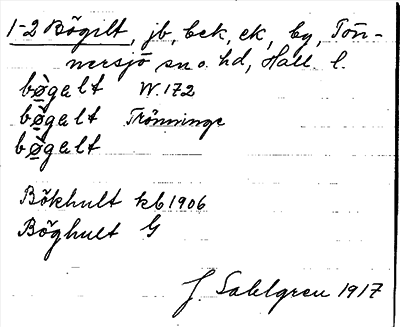 1-2 Bögilt, jb, bek, ek, by, Tön-
nersjö sn o. hd, Hall. l.
bø̀gəlt W. 172
bø̀gəlt Trönninge
bø̀gəlt
Bökhult kb 1906
Böghult G
J. Sahlgren 1917